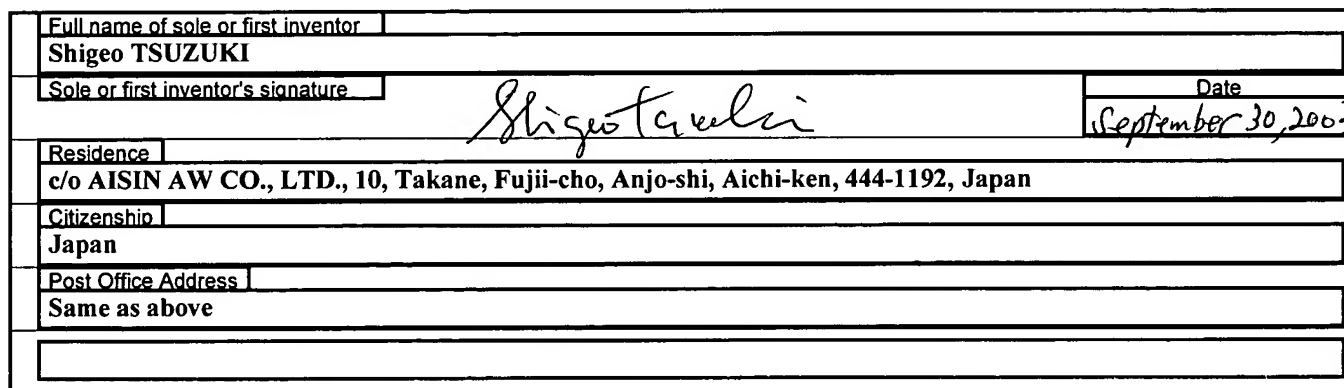 Full name of sole or first inventor
Shigeo TSUZUKI
Sole or first inventor's signature
Date
Shigeo Tsuzuki
September 30, 200
Residence
c/o AISIN AW CO., LTD., 10, Takane, Fujii-cho, Anjo-shi, Aichi-ken, 444-1192, Japan
Citizenship
Japan
Post Office Address
Same as above